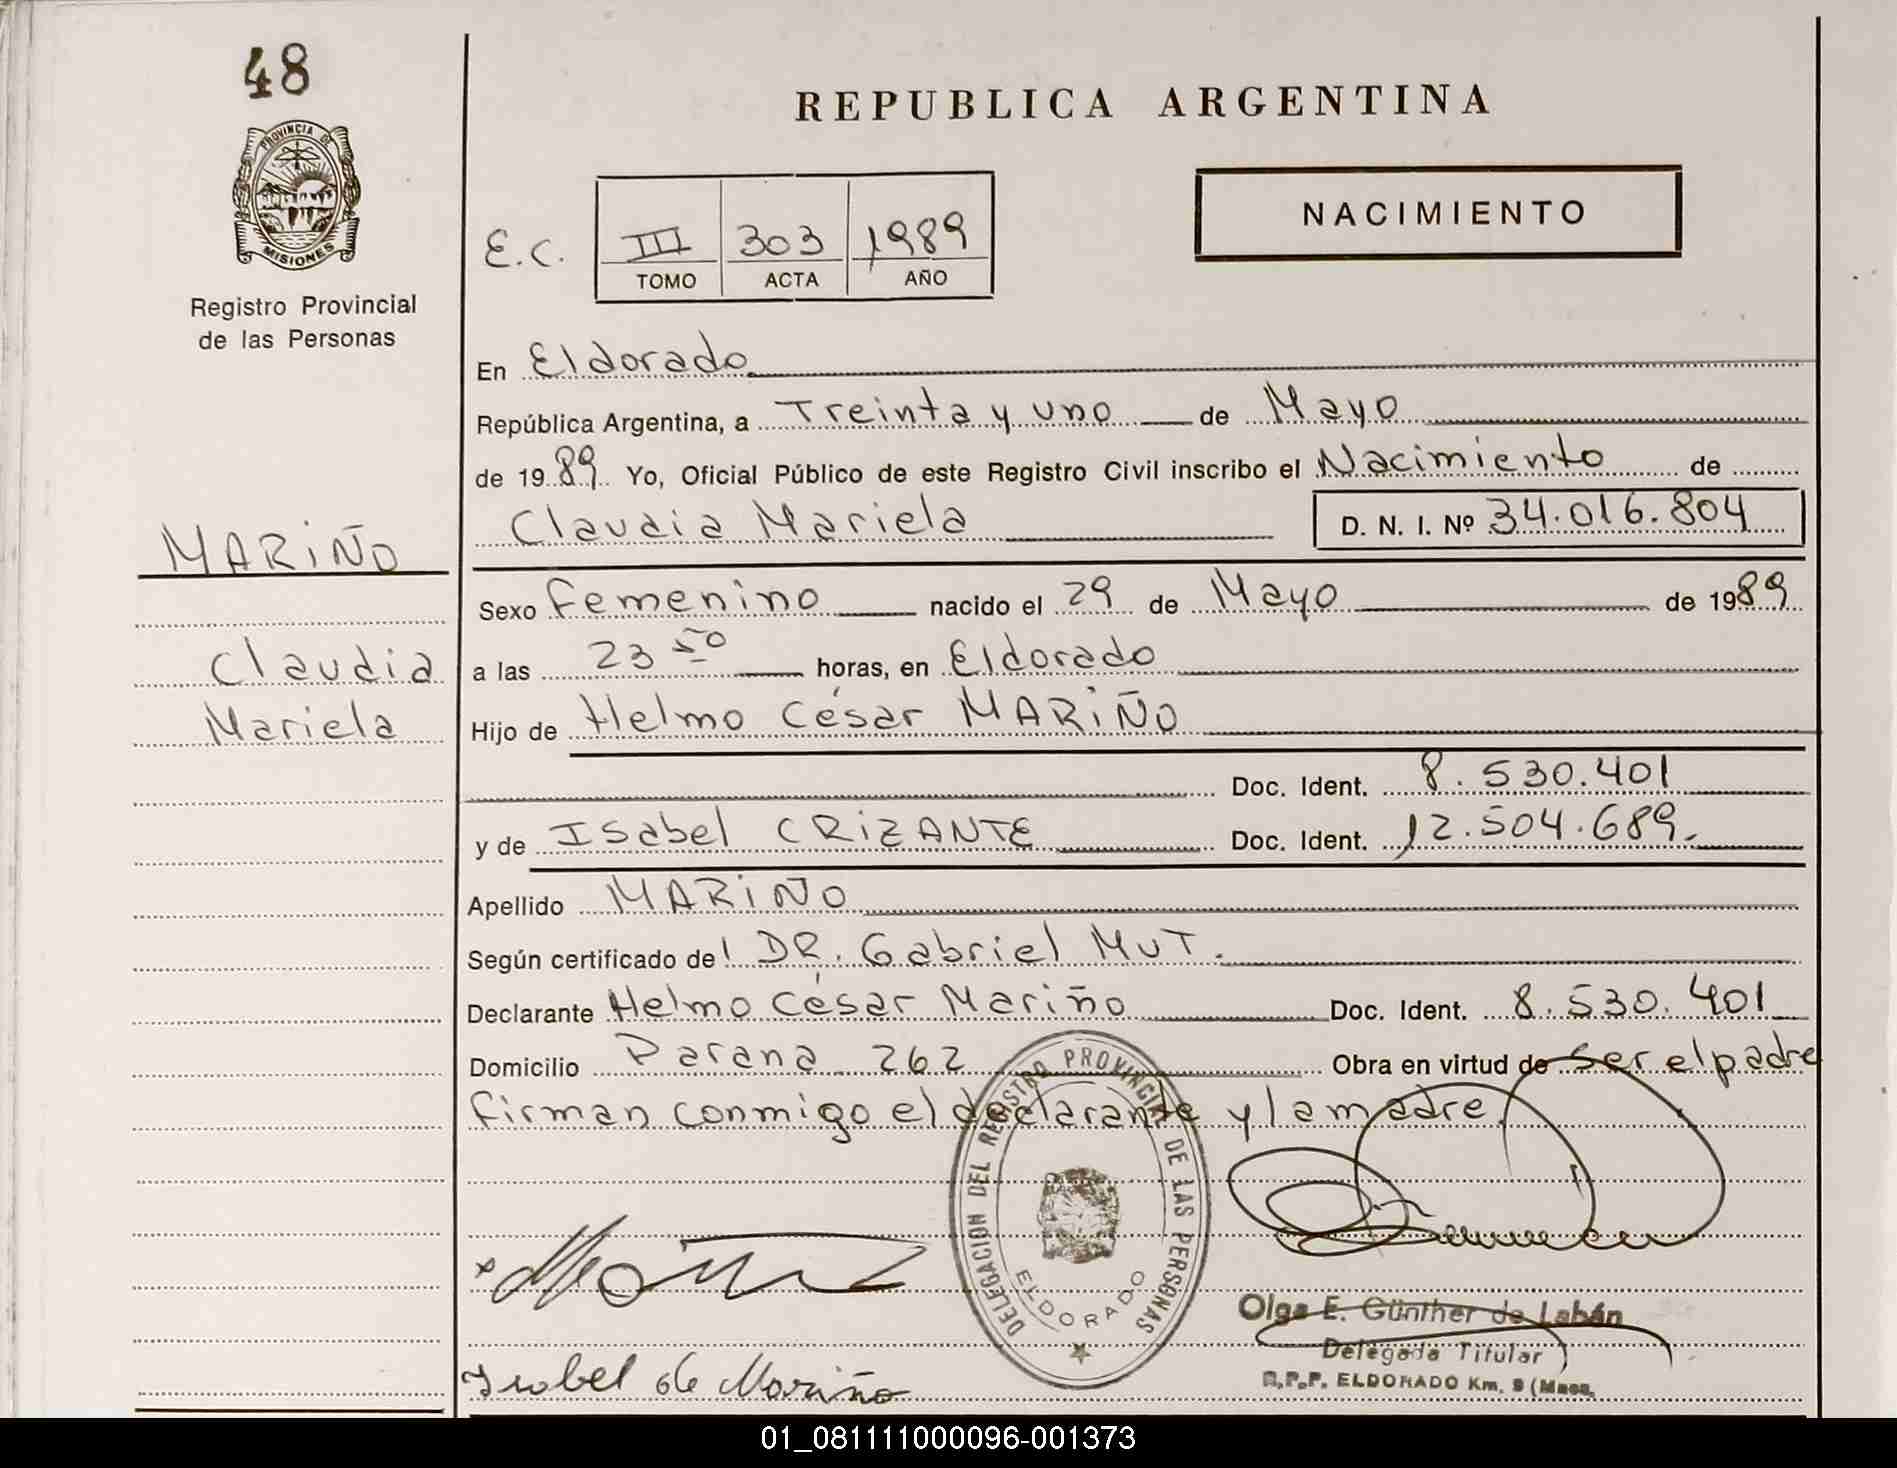 48
PROVINCIA DE
MISIONES
Registro Provincial
de las Personas
REPUBLICA ARGENTINA
NACIMIENTO
E.C. III 303 1989
TOMO ACTA AÑO
En Eldorado
República Argentina, a Treinta y uno de Mayo
de 1989 Yo, Oficial Público de este Registro Civil inscribo el Nacimiento de
Claudia Mariela D. N. I. Nº 34.016.804
MARiÑO
Sexo Femenino nacido el 29 de Mayo de 1989
Claudia
Mariela
a las 23 50 horas, en Eldorado
Hijo de Helmo César MARiÑO
Doc. Ident. 8.530.401
y de Isabel CRiZANTE Doc. Ident. 12.504.689.
Apellido MARiÑO
Según certificado del DR. Gabriel MUT.
Declarante Helmo César Mariño Doc. Ident. 8.530.401
Domicilio Parana 262 Obra en virtud de ser el padre
firman conmigo el declarante y la madre.
DELEGACION DEL REGISTRO PROVINCIAL DE LAS PERSONAS
ELDORADO
Olga E. Günther de Labán
Delegada Titular
R.P.P. ELDORADO Km. 9 (Mnes.
Isabel de Mariño
01_081111000096-001373